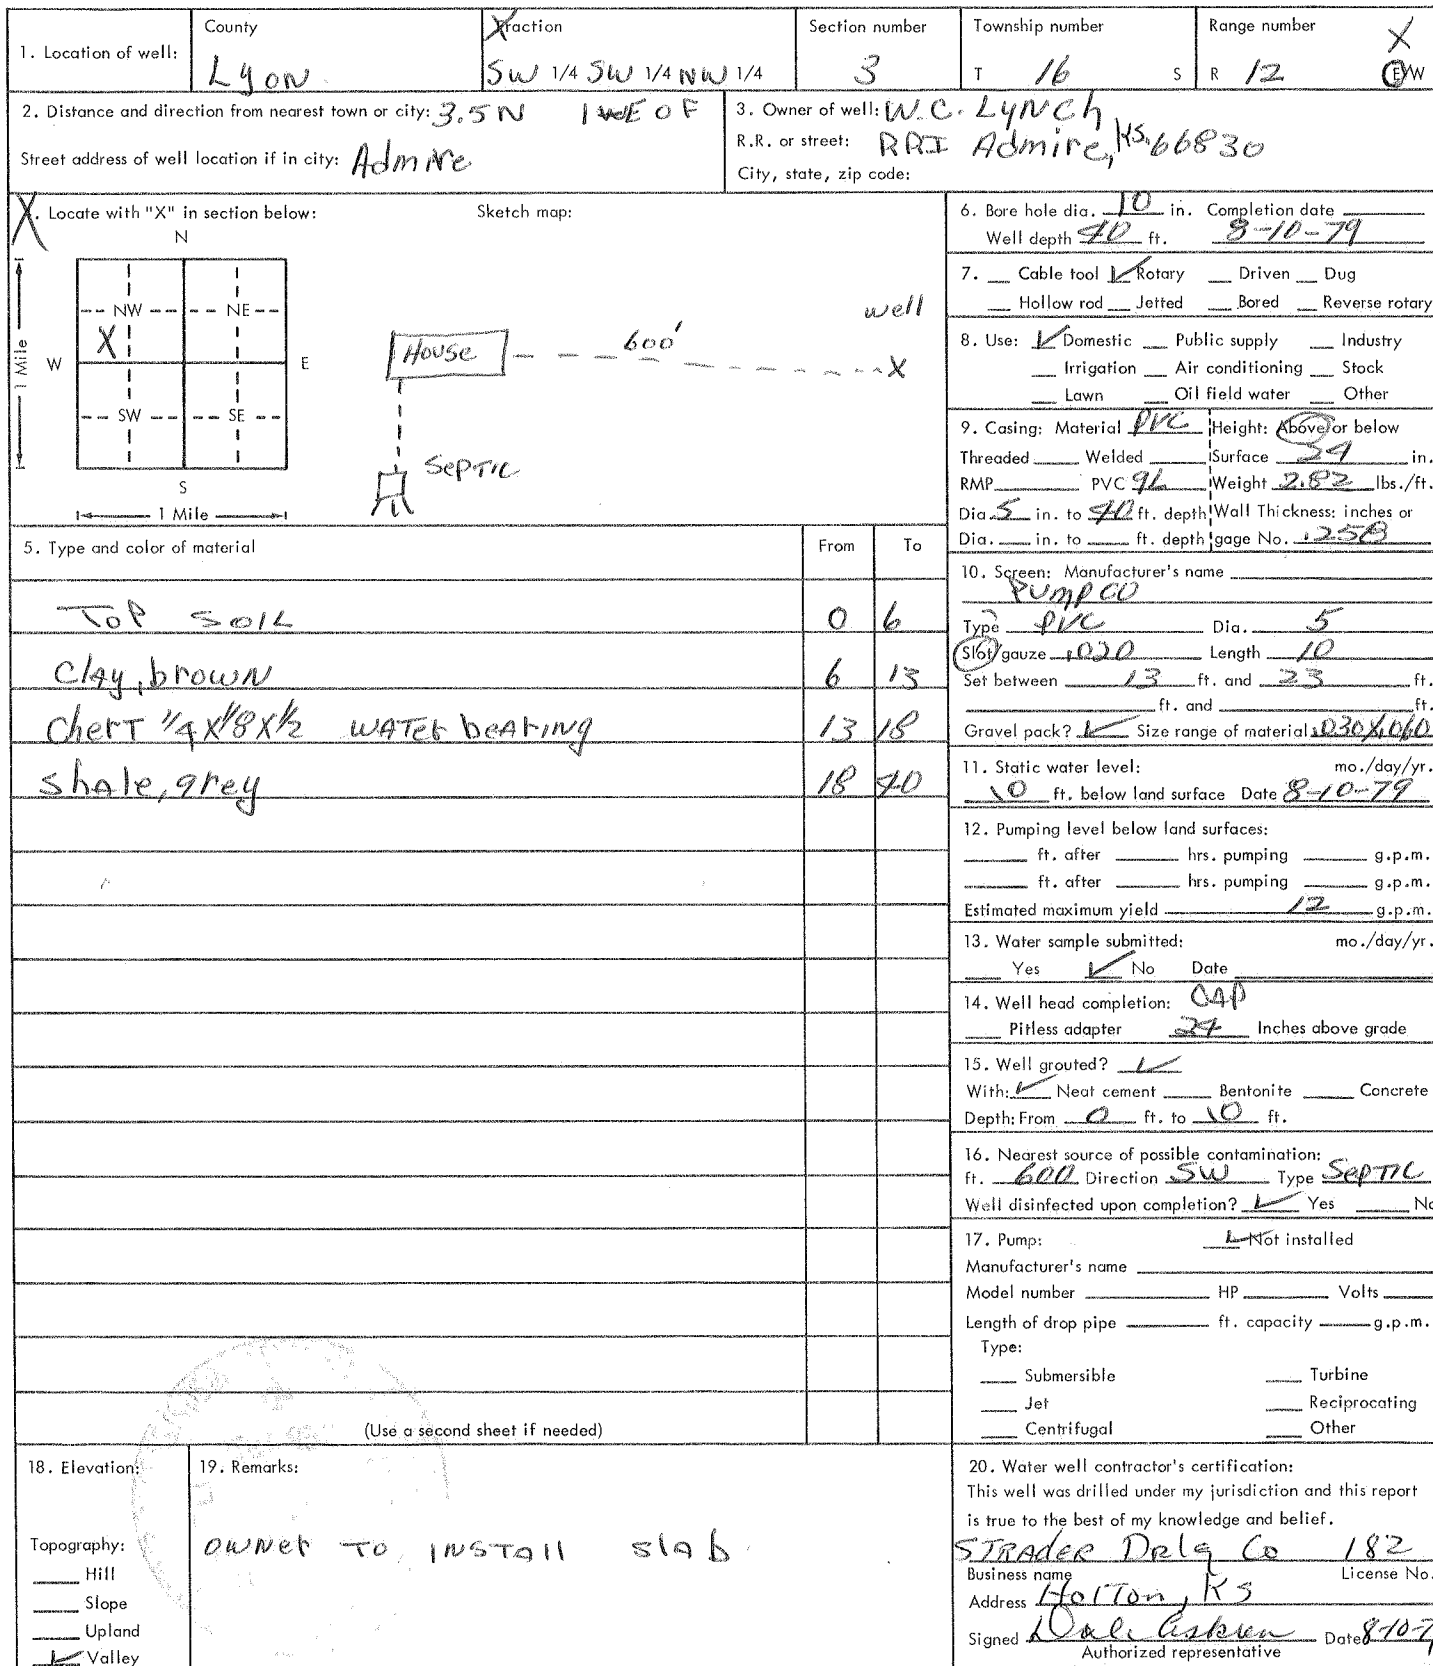 County
Fraction
Section number
Township number
Range number
X
1. Location of well:
Lyon
SW 1/4 SW 1/4 NW 1/4
3
T 16 S
R 12 E/W
2. Distance and direction from nearest town or city: 3.5 N 1 E OF
Street address of well location if in city: Admire
3. Owner of well: W.C. Lynch
R.R. or street: RR1 Admire, KS. 66830
City, state, zip code:
X. Locate with "X" in section below:
Sketch map:
N
NW NE
X
W E
SW SE
S
1 Mile
1 Mile
well
House 600' X
Septic
5. Type and color of material From To
Top Soil 0 6
Clay, brown 6 13
Chert 1/4 X 1/8 X 1/2 water bearing 13 18
shale, grey 18 40
(Use a second sheet if needed)
6. Bore hole dia. 10 in. Completion date
Well depth 40 ft. 8-10-79
7. Cable tool ✓ Rotary Driven Dug
Hollow rod Jetted Bored Reverse rotary
8. Use: ✓ Domestic Public supply Industry
Irrigation Air conditioning Stock
Lawn Oil field water Other
9. Casing: Material PVC Height: Above or below
Threaded Welded Surface 24 in.
RMP PVC GL Weight 2.82 lbs./ft.
Dia. 5 in. to 40 ft. depth Wall Thickness: inches or
Dia. in. to ft. depth gage No. .258
10. Screen: Manufacturer's name
PUMPCO
Type PVC Dia. 5
Slot/gauze .020 Length 10
Set between 13 ft. and 23 ft.
ft. and ft.
Gravel pack? ✓ Size range of material .030X.060
11. Static water level: mo./day/yr.
10 ft. below land surface Date 8-10-79
12. Pumping level below land surfaces:
ft. after hrs. pumping g.p.m.
ft. after hrs. pumping g.p.m.
Estimated maximum yield 12 g.p.m.
13. Water sample submitted: mo./day/yr.
Yes ✓ No Date
14. Well head completion: CAP
Pitless adapter 24 Inches above grade
15. Well grouted? ✓
With: ✓ Neat cement Bentonite Concrete
Depth: From 0 ft. to 10 ft.
16. Nearest source of possible contamination:
ft. 600 Direction SW Type Septic
Well disinfected upon completion? ✓ Yes No
17. Pump: ✓ Not installed
Manufacturer's name
Model number HP Volts
Length of drop pipe ft. capacity g.p.m.
Type:
Submersible Turbine
Jet Reciprocating
Centrifugal Other
18. Elevation:
Topography:
Hill
Slope
Upland
✓ Valley
19. Remarks:
owner to install slab
20. Water well contractor's certification:
This well was drilled under my jurisdiction and this report
is true to the best of my knowledge and belief.
STRADER Drlg Co 182
Business name License No.
Address Holton, KS
Signed Date 8-10-7
Authorized representative